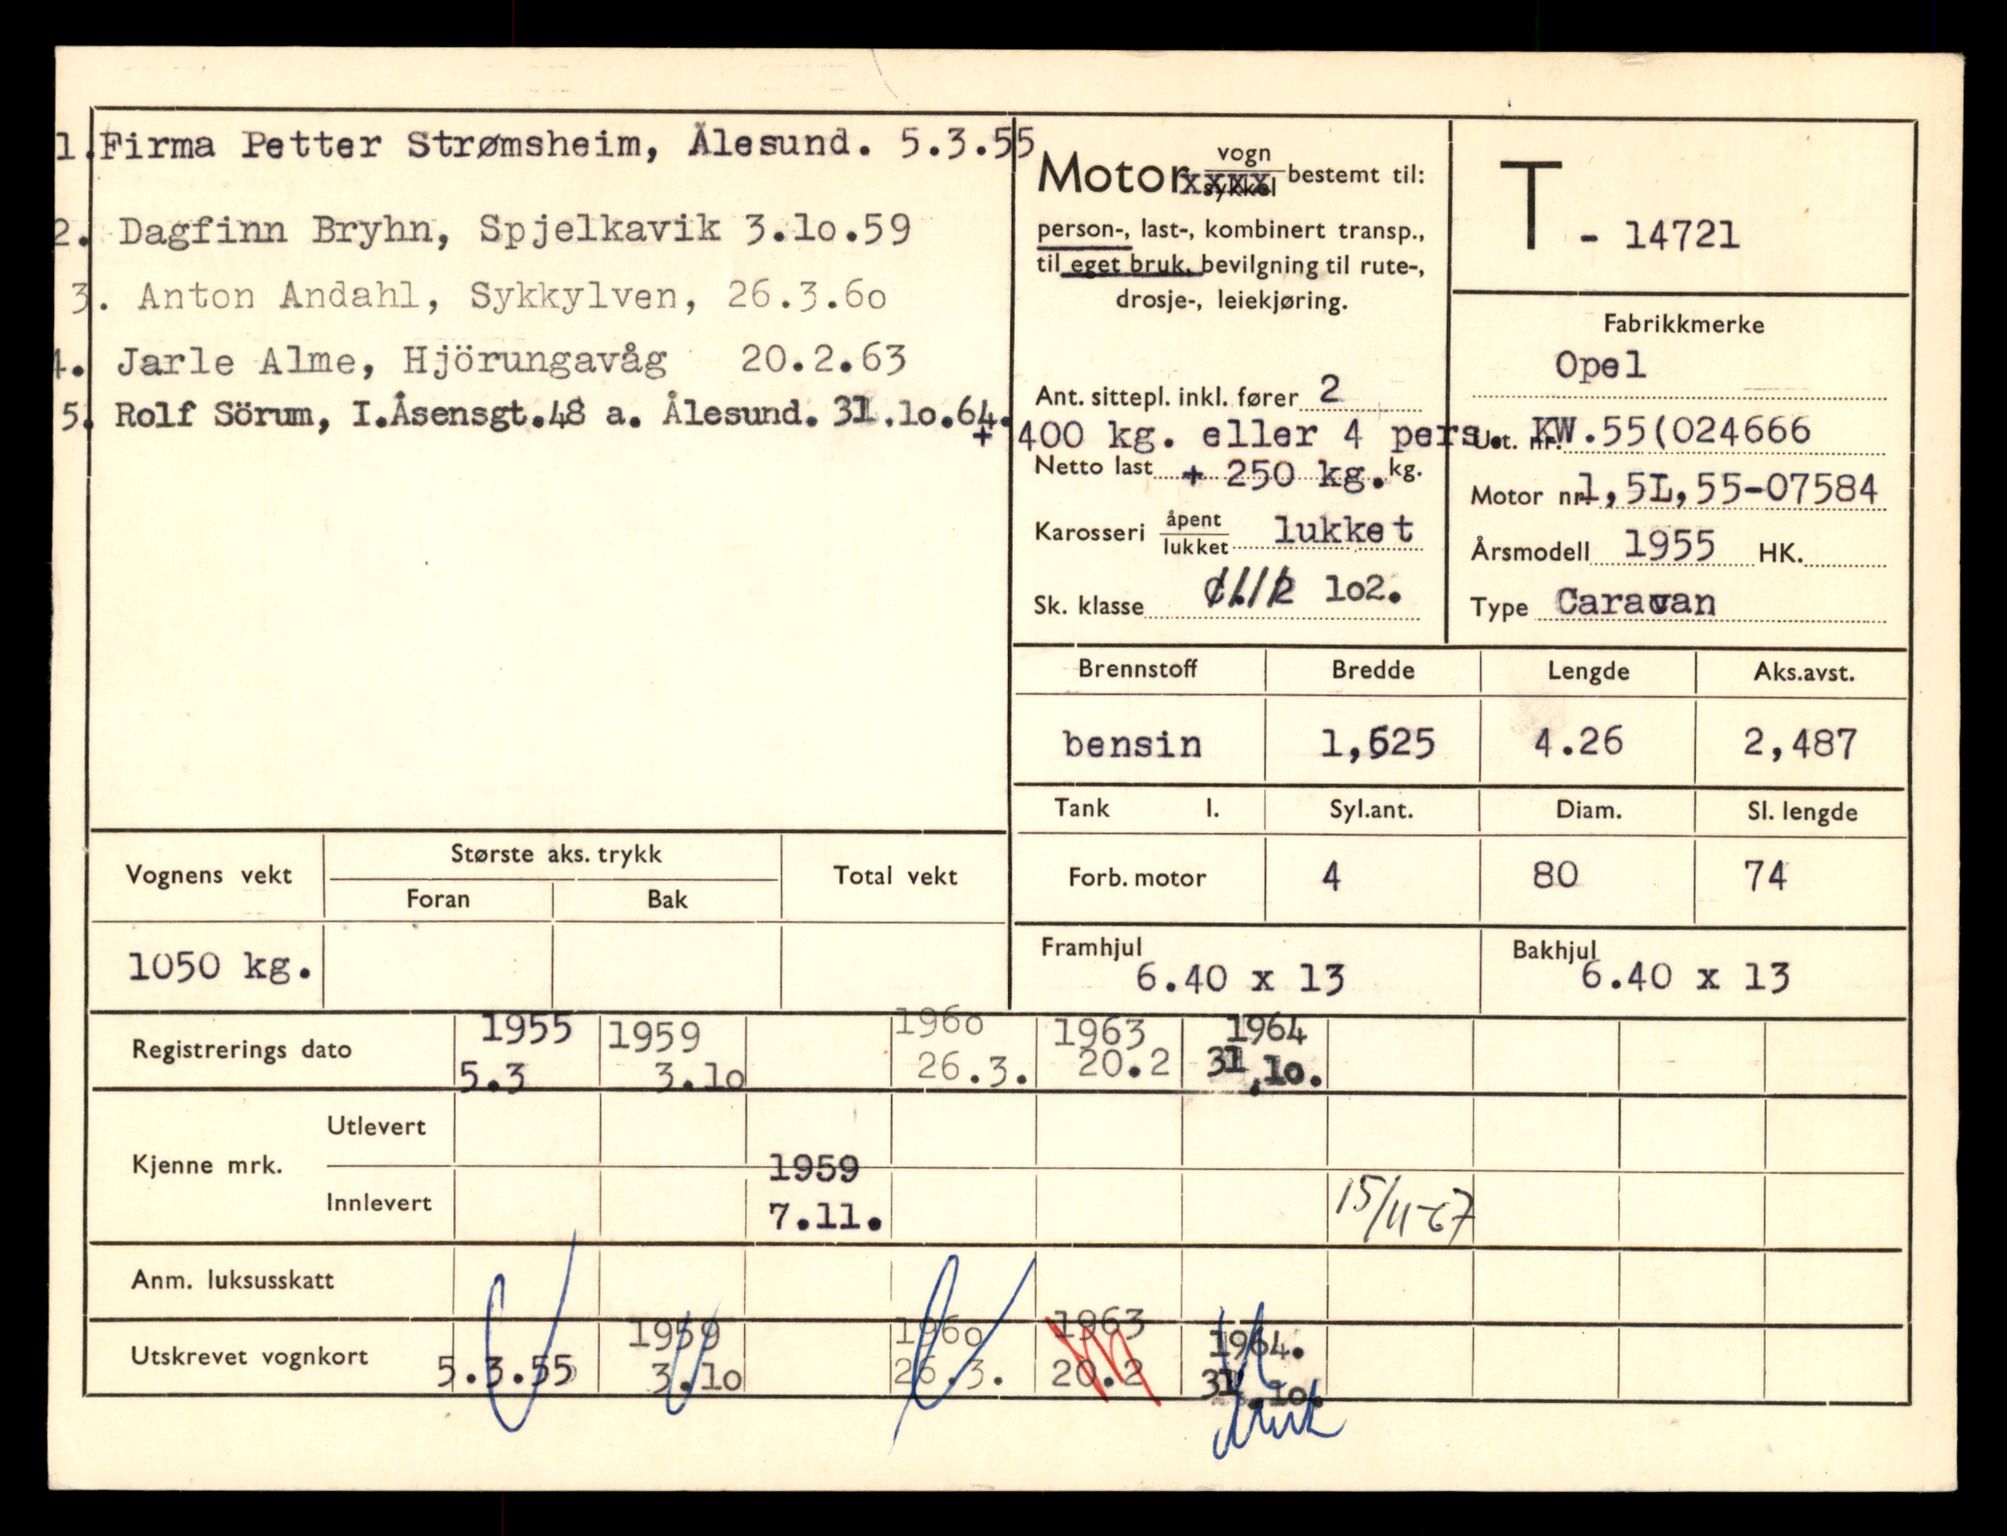 1. Firma Petter Strømsheim, Ålesund. 5.3.55
2. Dagfinn Bryhn, Spjelkavik 3.10.59
3. Anton Andahl, Sykkylven, 26.3.60
4. Jarle Alme, Hjörungavåg 20.2.63
5. Rolf Sörum, I.Åsensgt.48 a. Ålesund. 31.10.64.
Motor vogn sykkel bestemt til:
person-, last-, kombinert transp.,
til eget bruk, bevilgning til rute-,
drosje-, leiekjøring.
Ant. sittepl. inkl. fører 2
+ 400 kg. eller 4 pers.
Netto last + 250 kg. kg.
Karosseri åpent lukket lukket
Sk. klasse 102.
T - 14721
Fabrikkmerke
Opel
Ut. nr. KW.55(024666
Motor nr. 1,5L,55-07584
Årsmodell 1955 HK.
Type Caravan
Brennstoff Bredde Lengde Aks.avst.
bensin 1,625 4.26 2,487
Tank l. Syl.ant. Diam. Sl. lengde
Forb. motor 4 80 74
Framhjul 6.40 x 13 Bakhjul 6.40 x 13
Vognens vekt Største aks. trykk Total vekt
Foran Bak
1050 kg.
Registrerings dato 1955 1959 1960 1963 1964
5.3 3.10 26.3. 20.2 31.10.
Kjenne mrk. Utlevert
Innlevert 1959 7.11. 15/11-67
Anm. luksusskatt
Utskrevet vognkort 1959 1960 1963 1964.
5.3.55 3.10 26.3. 20.2 31.10.